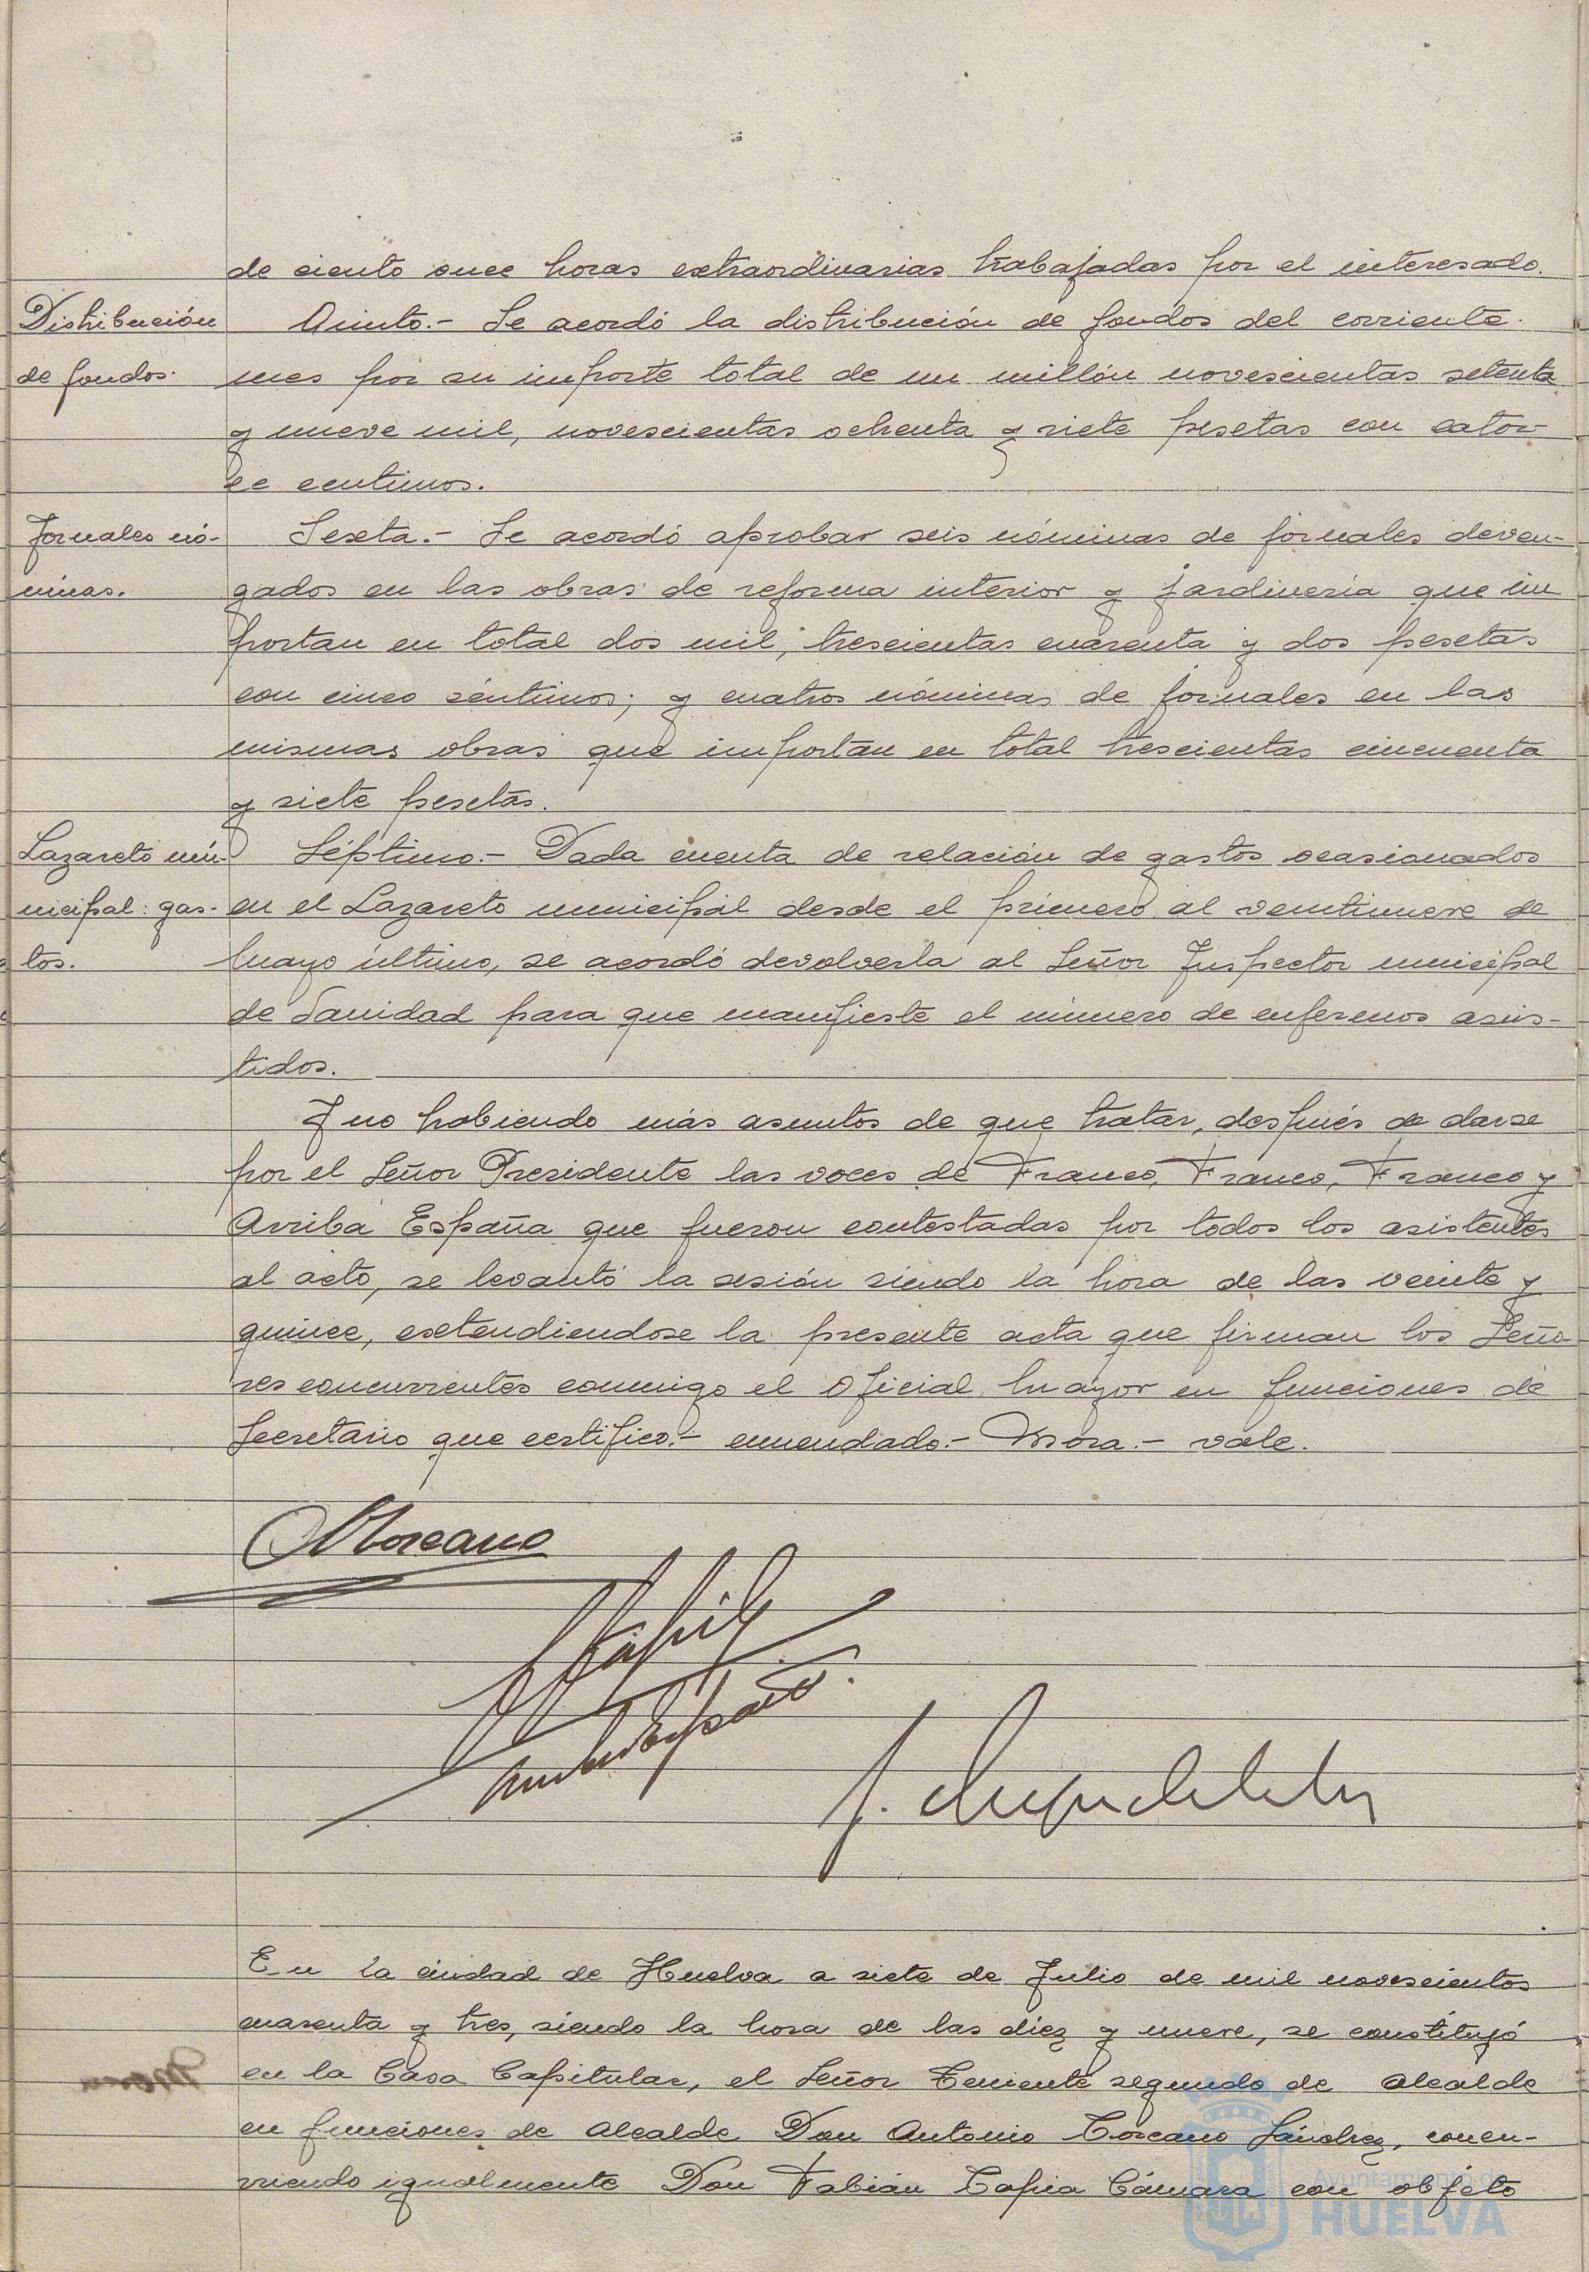 de ciento once horas extraordinarias trabajadas por el interesado.
Distribución
de fondos.
Quinto.- Se acordó la distribución de fondos del corriente
mes por su importe total de un millón novescientas setenta
y nueve mil, novescientas ochenta y siete pesetas con cator-
ce centimos.
Jornales nó-
minas.
Sexta.- Se acordó aprobar seis nóminas de jornales deven-
gados en las obras de reforma interior y jardinería que im
portan en total dos mil, trescientas cuarenta y dos pesetas
con cinco céntimos; y cuatros nóminas de jornales en las
mismas obras que importan en total trescientas cincuenta
y siete pesetas.
Lazareto mu-
nicipal: gas-
tos.
Séptimo.- Dada cuenta de relación de gastos ocasionados
en el Lazareto municipal desde el primero al veintinueve de
Mayo último, se acordó devolverla al Señor Inspector municipal
de Sanidad para que manifieste el número de enfermos asis-
tidos.
Y no habiendo más asuntos de que tratar, después de darse
por el Señor Presidente las voces de Franco, Franco, Franco y
Arriba España que fueron contestadas por todos los asistentes
al acto, se levantó la sesión siendo la hora de las veinte y
quince, extendiendose la presente acta que firman los Seño-
res concurrentes conmigo el Oficial Mayor en funciones de
Secretario que certifico.- enmendado.- Mora.- vale.
En la ciudad de Huelva a siete de Julio de mil novescientos
cuarenta y tres, siendo la hora de las diez y nueve, se constituyó
en la Casa Capitular, el Señor Teniente segundo de alcalde
en funciones de alcalde Don Antonio Toscano Sánchez, concu-
rriendo igualmente Don Fabián Tapia Cámara con objeto
Ayuntamiento de
HUELVA